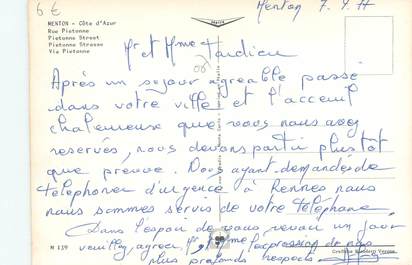 6 €
Menton 7.4.77
MENTON - Côte d'Azur
Rue Pietonne
Pietonne Street
Pietonne Strasse
Via Pietonne
Mr et Mme Tardieu
Après un sejour agreable passé
dans votre ville et l'acceuil
chaleureuse que vous nous avez
reservés, nous devons partir plus tôt
que preuve. Vous ayant demandés de
telephoner d'urgence à Rennes nous
nous sommes servis de votre téléphone.
Dans l'espoir de vous revoir un jour
veuillez agreer Mr et Mme l'expression de nos
plus profonds respects
M 139